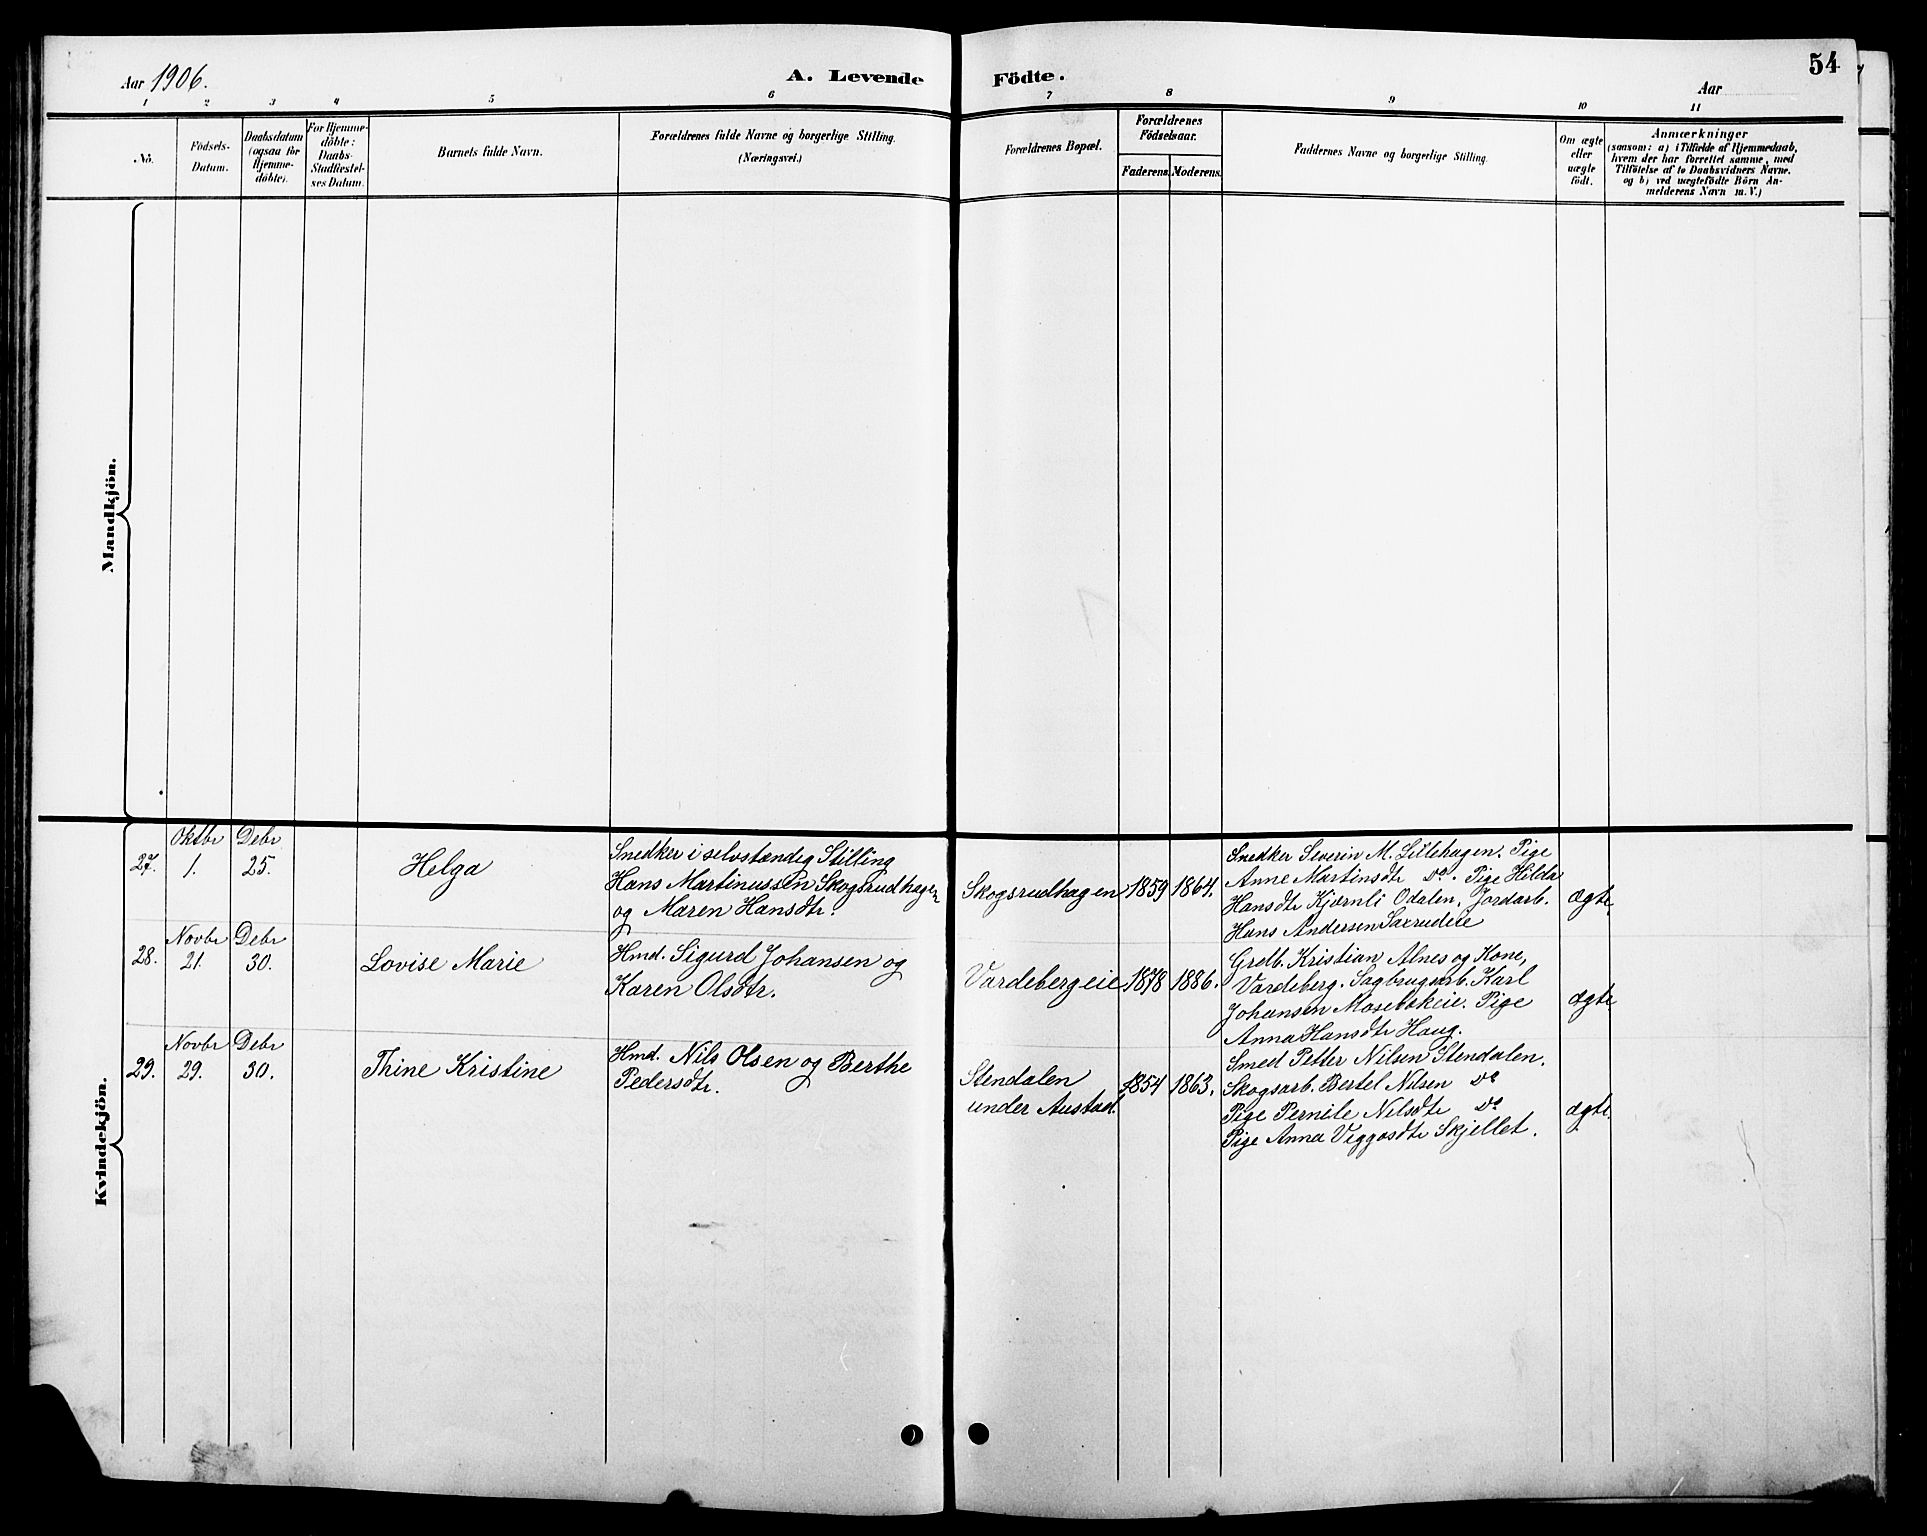 Aar 1906.
A. Levende
Födte.
54
Aar
1
2
3
4
5
6
7
8
9
10
11
No.
Födsels-
Datum.
Daabsdatum
(ogsaa for
Hjemme-
döbte).
For Hjemme-
döbte:
Daabs-
Stadfæstel-
ses Datum.
Barnets fulde Navn.
Forældrenes fulde Navne og borgerlige Stilling.
(Næringsvei.)
Forældrenes Bopæl.
Forældrenes
Födselsaar.
Faderens.
Moderens.
Faddernes Navne og borgerlige Stilling.
Om ægte
eller
uægte
født.
Anmærkninger
(saasom: a) i Tilfælde af Hjemmedaab,
hvem der har forrettet samme, med
Tilföielse af to Daabsvidners Navne.
og b) ved uægtefödte Börn An-
melderens Navn m. V.)
Mandkjön.
Kvindekjön.
27.
Oktbr
1.
Debr
25.
Helga
Snedker i selvstændig Stilling
Hans Martinussen Skogsrudhagen
og Maren Hansdtr.
Skogsrudhagen
1859
1864.
Snedker Severin M. Lillehagen. Pige
Anne Martinsdtr do. Pige Hilda
Hansdtr Kjærnli Odalen. Jordarb.
Hans Andersen Saxrudeie
Ægte
28.
Novbr
21.
Debr
30.
Lovise Marie
Hmd. Sigurd Johansen og
Karen Olsdtr.
Vardebergeie
1878
1886.
Grdb. Kristian Alnes og Kone,
Vardeberg. Sagbrugsarb. Karl
Johansen Mosebekeie. Pige
Anna Hansdtr Haug.
Ægte
29.
Novbr
29.
Debr
30.
Thine Kristine
Hmd. Nils Olsen og Berthe
Pedersdtr.
Stendalen
under Austad.
1854
1863.
Smed Petter Nilsen Stendalen.
Skogsarb. Bertel Nilsen do
Pige Pernile Nilsdtr do
Pige Anna Viggosdtr Skjellet.
Ægte.